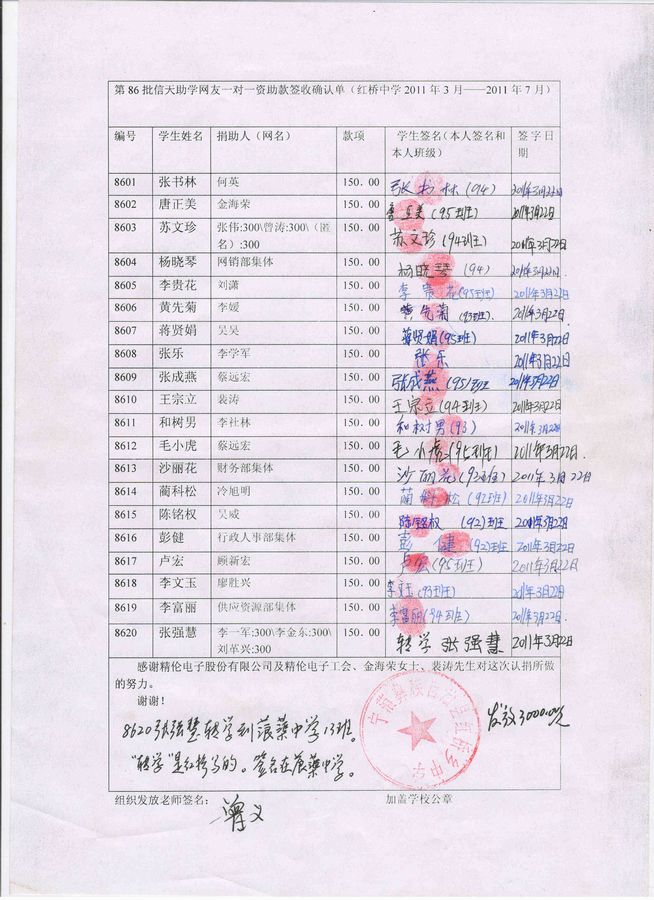 第 86 批信天助学网友一对一资助款签收确认单（红桥中学 2011 年 3 月——2011 年 7 月）
编号 学生姓名 捐助人（网名） 款项 学生签名（本人签名和本人班级） 签字日期
8601 张书林 何英 150.00 张书林（94） 2011年3月22日
8602 唐正美 金海荣 150.00 唐正美（95班） 2011年3月22日
8603 苏文珍 张伟:300\曾涛:300\（匿名）:300 150.00 苏文珍（94班） 2011年3月22日
8604 杨晓琴 网销部集体 150.00 杨晓琴（94） 2011年3月22日.
8605 李贵花 刘潇 150.00 李贵花（95班） 2011年3月22日
8606 黄先菊 李媛 150.00 黄先菊（93班）. 2011年3月22日.
8607 蒋贤娟 吴昊 150.00 蒋贤娟（95班） 2011年3月22日.
8608 张乐 李学军 150.00 张乐 2011年3月22日
8609 张成燕 蔡远宏 150.00 张成燕（95）班 2011年3月22日
8610 王宗立 裴涛 150.00 王宗立（94班） 2011年3月22日
8611 和树男 李社林 150.00 和树男（93） 2011年3月22日
8612 毛小虎 蔡远宏 150.00 毛小虎（95班） 2011年3月22日.
8613 沙丽花 财务部集体 150.00 沙丽花（93班） 2011年3月22日
8614 蔺科松 冷旭明 150.00 蔺科松（92班） 2011年3月22日
8615 陈铭权 吴威 150.00 陈铭权（92）班 2011年3月22日
8616 彭健 行政人事部集体 150.00 彭健（92）班 2011年3月22日
8617 卢宏 顾新宏 150.00 卢宏（95班） 2011年3月22日
8618 李文玉 廖胜兴 150.00 李文玉（93班） 2011年3月22日
8619 李富丽 供应资源部集体 150.00 李富丽（94班） 2011年3月22日.
8620 张强慧 李一军:300\李金东:300\刘革兴:300 150.00 转学 张强慧 2011年3月22日
感谢精伦电子股份有限公司及精伦电子工会、金海荣女士、裴涛先生对这次认捐所做
的努力。
谢谢！
发放3000.00元
8620张强慧转学到蒗蕖中学13班。
"转学"是红桥写的。签名在蒗蕖中学。
宁蒗彝族自治县红桥乡中学
组织发放老师签名： 曾义 加盖学校公章